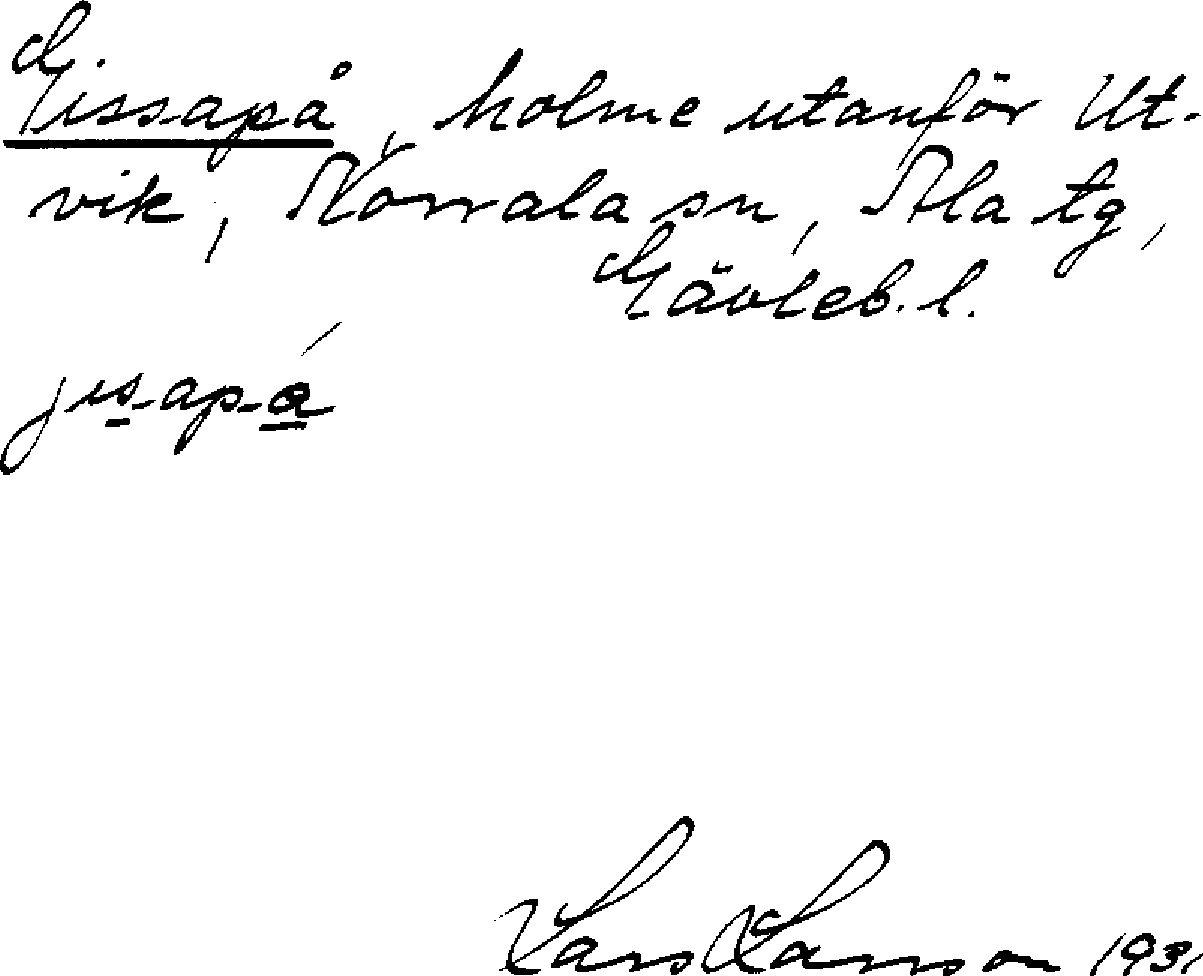 Gissapå, holme utanför Ut-
vik, Norrala sn, Ala tg,
Gävleb. l.
jisapá
Lars Larsson 1931